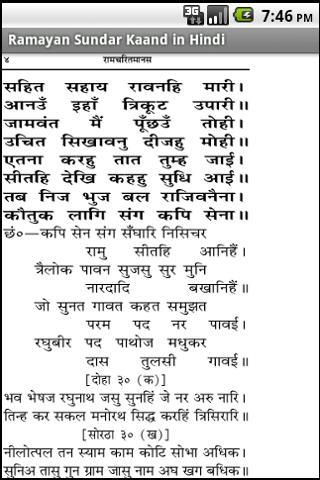 3G 7:46 PM
Ramayan Sundar Kaand in Hindi
४ रामचरितमानस
सहित सहाय रावनहि मारी।
आनउँ इहाँ त्रिकूट उपारी॥
जामवंत मैं पूँछउँ तोही।
उचित सिखावनु दीजहु मोही॥
एतना करहु तात तुम्ह जाई।
सीतहि देखि कहहु सुधि आई॥
तब निज भुज बल राजिवनैना।
कौतुक लागि संग कपि सेना॥
छं०—कपि सेन संग सँघारि निसिचर
रामु सीतहि आनिहैं।
त्रैलोक पावन सुजसु सुर मुनि
नारदादि बखानिहैं॥
जो सुनत गावत कहत समुझत
परम पद नर पावई।
रघुबीर पद पाथोज मधुकर
दास तुलसी गावई॥
[दोहा ३० (क)]
भव भेषज रघुनाथ जसु सुनहिं जे नर अरु नारि।
तिन्ह कर सकल मनोरथ सिद्ध करहिं त्रिसिरारि॥
[सोरठा ३० (ख)]
नीलोत्पल तन स्याम काम कोटि सोभा अधिक।
सुनिअ तासु गुन ग्राम जासु नाम अघ खग बधिक॥